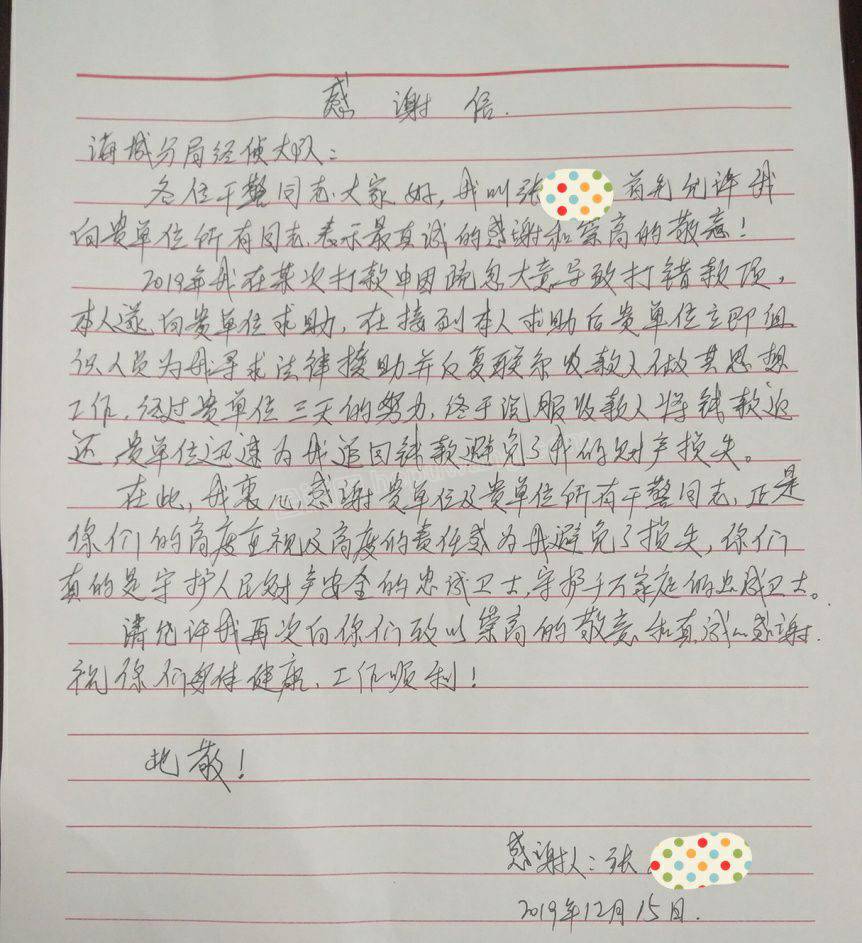 感谢信.
海城分局经侦大队:
各位干警同志大家好,我叫张 首先允许我
向贵单位所有同志表示最真诚的感谢和崇高的敬意!
2019年我在某次打款中因疏忽大意导致打错款项,
本人遂向贵单位求助,在接到本人求助后贵单位立即组
织人员为我寻求法律援助并反复联系收款人做其思想
工作,经过贵单位三天的努力,终于说服收款人将钱款返
还,贵单位迅速为我追回钱款避免了我的财产损失。
在此,我衷心感谢贵单位及贵单位所有干警同志,正是
你们的高度重视及高度的责任感为我避免了损失,你们
真的是守护人民财产安全的忠诚卫士,守护千万家庭的忠诚卫士。
请允许我再次向你们致以崇高的敬意和真诚的感谢.
祝你们身体健康、工作顺利!
此致!
感谢人:张
2019年12月15日.